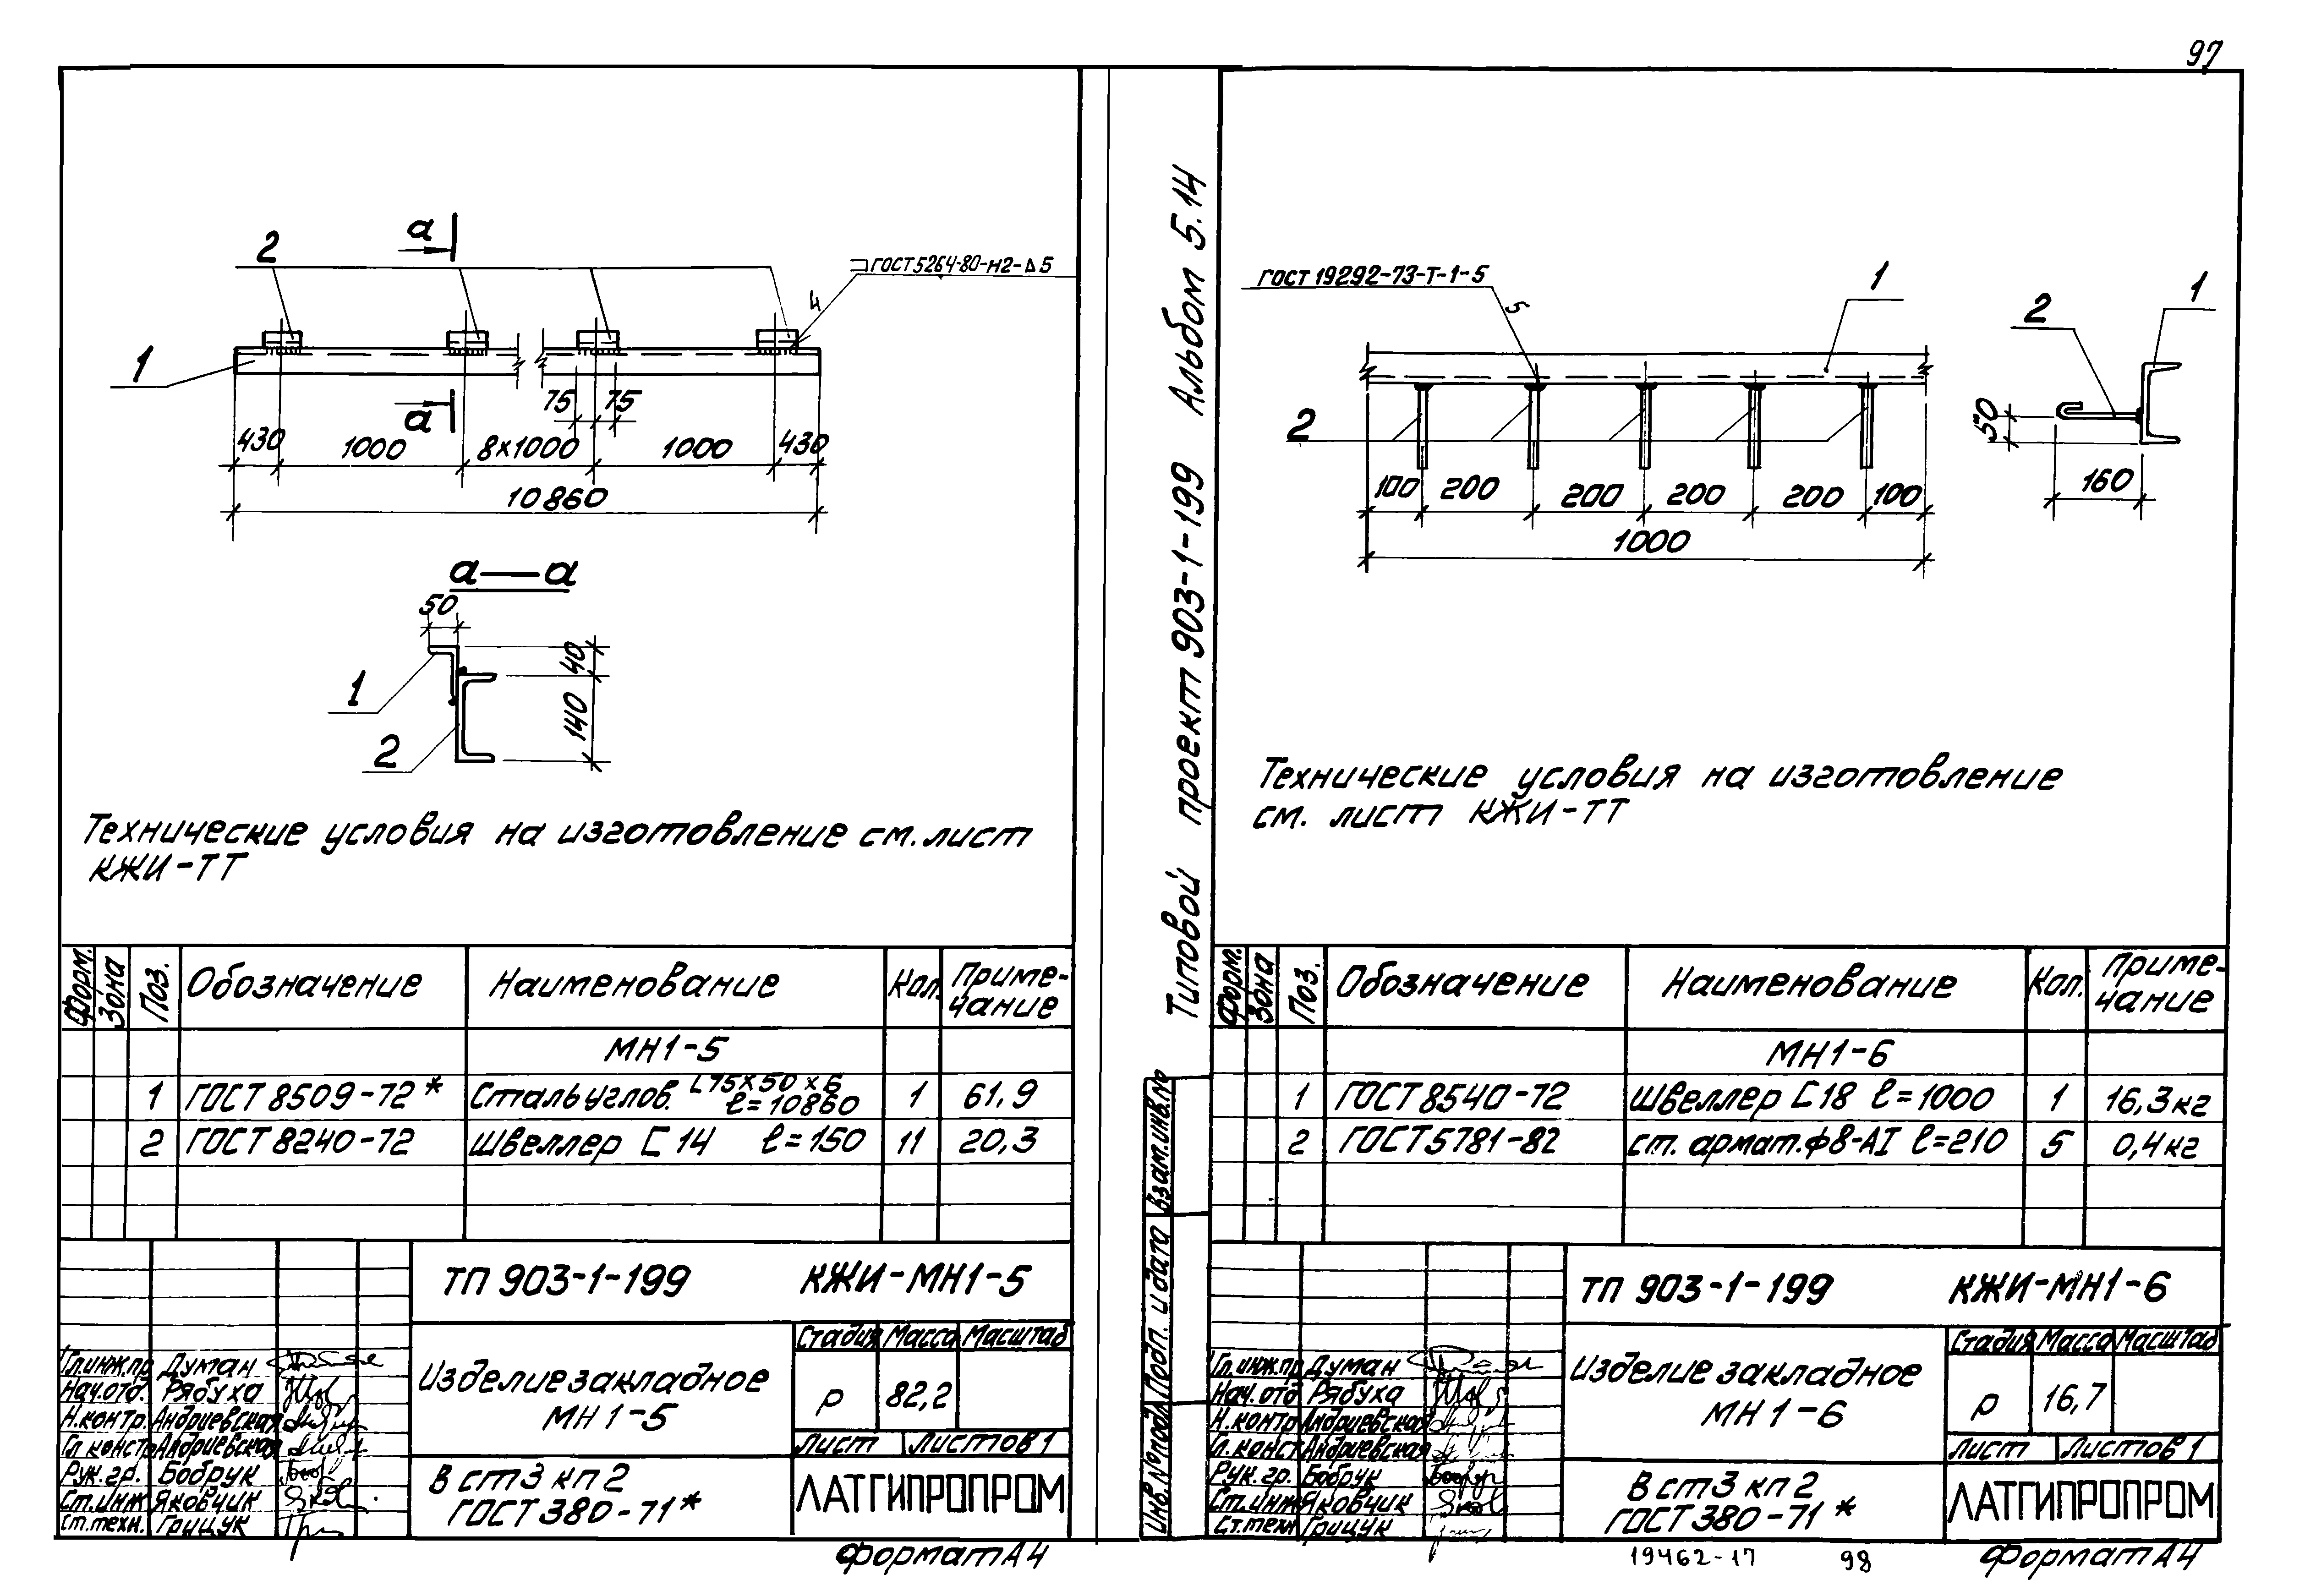 97
а
2
ГОСТ 5264-80-Н2-Δ5
4
1
75 75
а
430 1000 8×1000 1000 430
10860
а—а
50
40
1
140
2
Технические условия на изготовление см. лист
КЖИ-ТТ
Форм. Зона Поз. Обозначение Наименование Кол. Приме-
чание
МН1-5
1 ГОСТ 8509-72* Сталь углов. L75×50×6
ℓ=10860 1 61,9
2 ГОСТ 8240-72 Швеллер [ 14 ℓ=150 11 20,3
ТП 903-1-199 КЖИ-МН1-5
Изделие закладное
МН1-5
Стадия Масса Масштаб
р 82,2
Лист Листов 1
Гл.инж.пр Думан
Нач.отд. Рябуха
Н.контр. Андриевская
Гл.констр Андриевская
Рук.гр. Бобрук
Ст.инж Яковчик
Ст.техн. Грицук
В ст3 кп2
ГОСТ 380-71*
ЛАТГИПРОПРОМ
Формат А4
Типовой проект 903-1-199 Альбом 5.14
Взам.инв.№
Подп. и дата
Инв.№подл.
ГОСТ 19292-73-Т-1-5
5
1
2
100 200 200 200 200 100
1000
2
1
50
160
Технические условия на изготовление
см. лист КЖИ-ТТ
Форм. Зона Поз. Обозначение Наименование Кол. Приме-
чание
МН1-6
1 ГОСТ 8540-72 Швеллер [ 18 ℓ=1000 1 16,3кг
2 ГОСТ 5781-82 ст. армат.ф8-АI ℓ=210 5 0,4кг
ТП 903-1-199 КЖИ-МН1-6
Изделие закладное
МН1-6
Стадия Масса Масштаб
р 16,7
Лист Листов 1
Гл.инж.пр Думан
Нач.отд Рябуха
Н.контр Андриевская
Гл.конст Андриевская
Рук.гр. Бобрук
Ст.инж Яковчик
Ст.техн Грицук
В ст3 кп2
ГОСТ 380-71*
ЛАТГИПРОПРОМ
19462-17 98
Формат А4